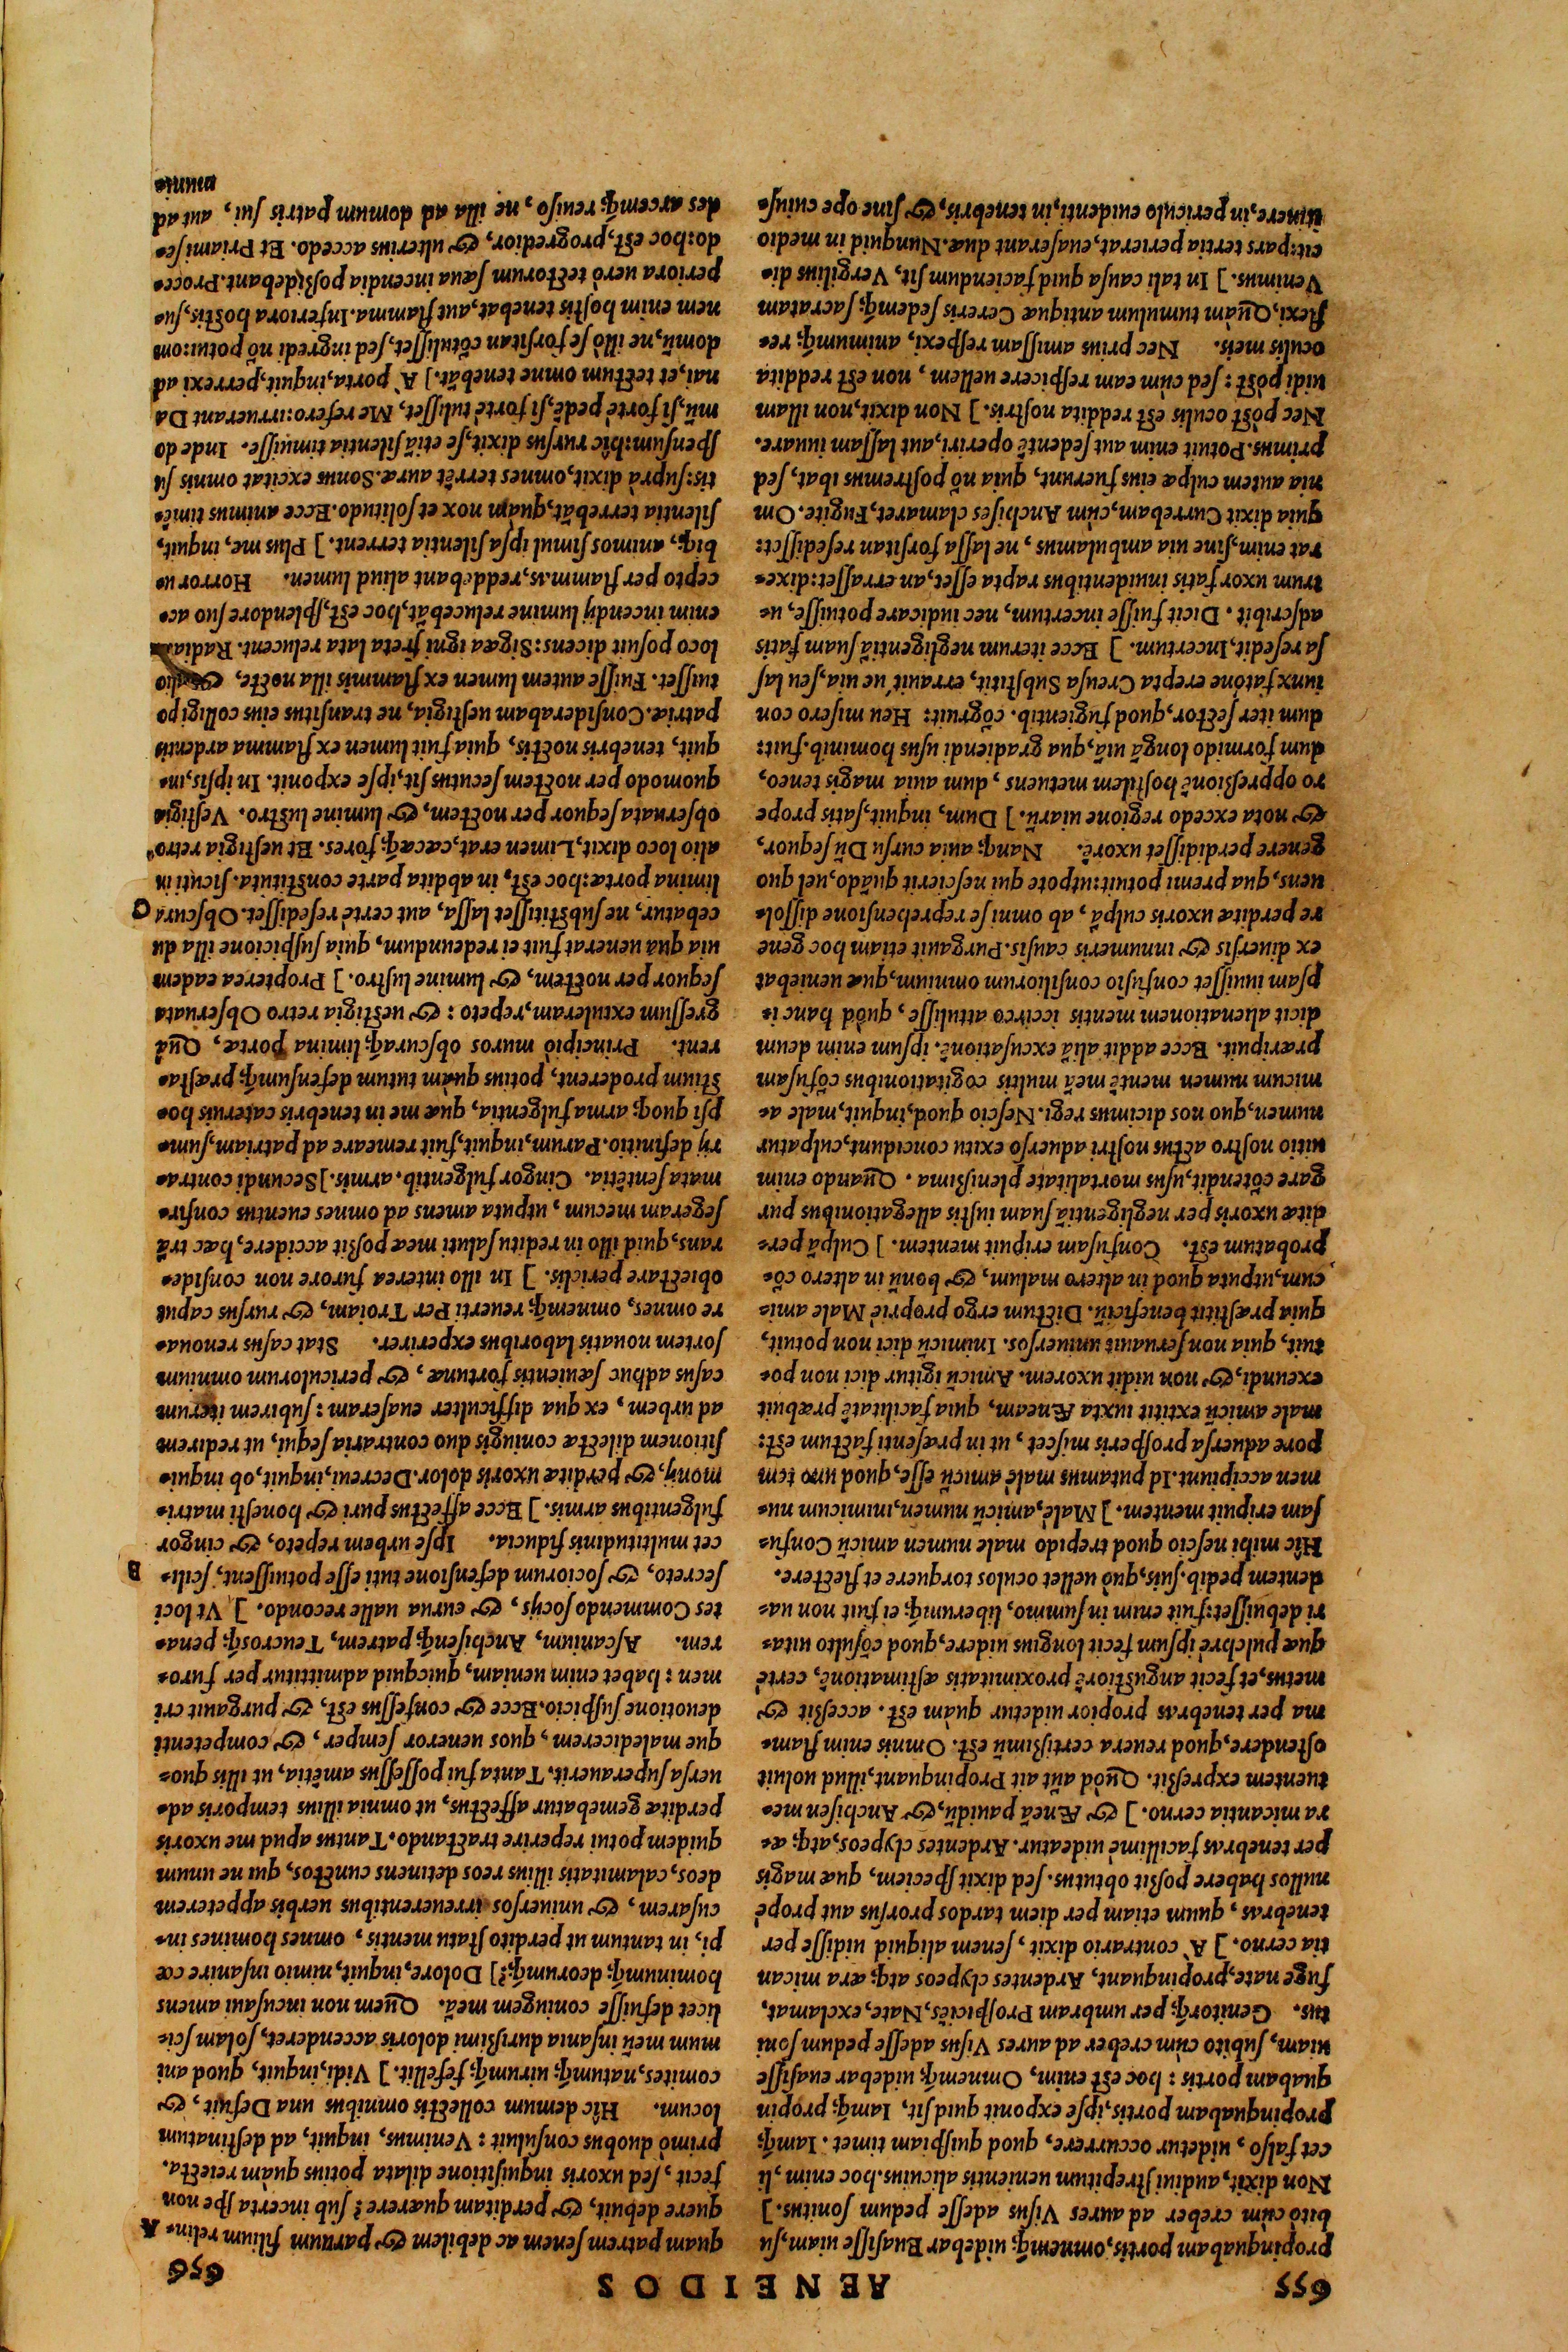 655 AENEIDOS 656
propinquabam portis, omnemq́; uidebar Euaſiſſe uiam, ſu
bitò cùm creber ad aures Viſus adeſſe pedum ſonitus.]
Non dixit, audiui ſtrepitum uenientis alicuius. hoc enim, li
cet falſo, uidetur occurrere, quod quiſpiam timet. Iamq́;
propinquabam portis, ipſe exponit quid ſit, Iamq́; propin
quabam portis: hoc eſt enim, Omnemq́; uidebar euaſiſſe
uiam, ſubito cùm creber ad aures Viſus adeſſe pedum ſoni
tus. Genitorq́; per umbram Proſpiciẽs, Nate, exclamat,
fuge nate, propinquant, Ardentes clypeos atq; æra mican
tia cerno.] À contrario dixit, ſenem aliquid uidiſſe per
tenebras, quum etiam per diem tardos prorſus aut propè
nullos habere poßit obtutus. ſed dixit ſpeciem, quæ magis
per tenebras facillimè uideatur. Ardentes clypeos, atq; æ-
ra micantia cerno.] & Æneã pauidũ, & Anchiſen me-
tuentem expreßit. Quòd aũt ait Propinquant, illud uoluit
oſtendere, quod reuera certißimũ eſt. Omnis enim flam-
ma per tenebras propior uidetur quàm eſt. acceßit &
metus, et fecit anguſtiorẽ proximitatis æſtimationẽ, certè
quæ pulchrè ipſum fecit longius uidere, quod cõſulto uita-
ri debuiſſet: fuit enim in ſummo, liberumq́; ei fuit non ua-
dentem pedib. ſuis, quò uellet oculos torquere et flectere.
Hîc mihi neſcio quod trepido male numen amicũ Confu-
ſam eripuit mentem.] Malè, amicũ numen, inimicum nu-
men accipiunt. Id putamus malè amicũ eſſe, quod uno tem
pore aduerſa proſperis miſcet, ut in præſenti factum eſt:
male amicũ extitit iuxta Æneam, quia facilitatẽ præbuit
exeundi, & non uidit uxorem. Amicũ igitur dici non po-
tuit, quia non ſeruauit uniuerſos. Inimicũ dici non potuit,
quia præſtitit beneficiũ. Dictum ergo propriè Male ami-
cum, utputa quod in altero malum, & bonũ in altero cõ-
probatum eſt. Confuſam eripuit mentem.] Culpã per-
ditæ uxoris per negligentiã ſuam iuſtis allegationibus pur
gare cõtendit, uſus mortalitate pleniſſima. Quando enim
uitio noſtro actus noſtri aduerſo exitu concidunt, culpatur
numen, quo nos dicimus regi. Neſcio quod, inquit, male a-
micum numen mentẽ meã multis cogitationibus cõfuſam
præripuit. Ecce addit aliã excuſationẽ. ipſum enim deum
dicit alienationem mentis iccirco attuliſſe, quòd hanc i-
pſam iuuiſſet confuſio conſiliorum omnium, quæ ueniebat
ex diuerſis & innumeris cauſis. Purgauit etiam hoc gene
re perditæ uxoris culpã, ab omni ſe reprehenſione diſſol-
uens, qua premi potuit: utpote qui neſcierit quãdo, uel quo
genere perdidiſſet uxorẽ. Nanq; auia curſu Dũ ſequor,
& nota excedo regione uiarũ.] Dum, inquit, ſatis prope
ro oppreßionẽ hoſtilem metuens, dum auia magis teneo,
dum formido longã uiã, qua gradiendi uſus hominib. fuit:
dum iter ſector, quod fugientib. cõgruit: Heu miſero con
iunx fatóne erepta Creuſa Subſtitit, errauit´ue uia, ſeu laſ
ſa reſedit, Incertum.] Ecce iterum negligentiã ſuam fatis
adſcribit. Dicit fuiſſe incertum, nec iudicare potuiſſe, u-
trum uxor fatis inuidentibus rapta eſſet, an erraſſet: dixe-
rat enim, ſine uia ambulamus, ne laſſa forſitan reſediſſet:
quia dixit Currebam, cùm Anchiſes clamaret, Fugite. Om
nia autem culpæ eius fuerunt, quia nõ poſtremus ibat, ſed
primus. Potuit enim aut ſedentẽ operiri, aut laſſam iuuare.
Nec pòſt oculis eſt reddita noſtris.] Non dixit, non illam
uidi pòſt: ſed cùm eam reſpicere uellem, non eſt reddita
oculis meis. Nec prius amiſſam reſpexi, animumq́; re-
flexi, Quàm tumulum antiquæ Cereris ſedemq́; ſacratam
Venimus.] In tali cauſa quid faciendum ſit, Vergilius di-
cit: pars tertia perierat, euaſerant duæ. Nunquid in medio
itinere, in periculo euidenti, in tenebris, & ſine ope cuiuſ-
quam patrem ſenem ac debilem & paruum filium relin- A
quere debuit, & perditam quærere? ſub incerta ſpe non
fecit, ſed uxoris inquiſitione dilata potius quàm reiecta,
primò duobus conſuluit: Venimus, inquit, ad deſtinatum
locum. Hîc demum collectis omnibus una Defuit, &
comites, natumq́; uirumq́; fefellit.] Vidi, inquit, quod ani
mum meũ inſania durißimi doloris accenderet, ſolam ſci-
licet defuiſſe coniugem meã. Quem non incuſaui amens
hominumq́; deorumq́;?] Dolore, inquit, nimio inſanire cœ
pi, in tantum ut perdito ſtatu mentis, omnes homines in-
cuſarem, & uniuerſos irreuerentibus uerbis appeterem
deos, calamitatis illius reos detinens cunctos, qui ne unum
quidem potui reperire tractando. Tantus apud me uxoris
perditæ gemebatur affectus, ut omnia illius temporis ad-
uerſa ſuperauerit. Tanta fui poſſeſſus amẽtia, ut illis quo-
que maledicerem, quos ueneror ſemper, & competenti
deuotione ſuſpicio. Ecce & confeſſus eſt, & purgauit cri
men: habet enim ueniam, quicquid admittitur per furo-
rem. Aſcanium, Anchiſenq́; patrem, Teucrosq́; pena-
tes Commendo ſocijs, & curua ualle recondo.] Vt loci
ſecreto, & ſociorum defenſione tuti eſſe potuiſſent, ſcili- B
cet multitudinis fiducia. Ipſe urbem repeto, & cingor
fulgentibus armis.] Ecce affectus puri & honeſti matri-
monij, & perditæ uxoris dolor. Decreui, inquit, ob inqui-
ſitionem dilectæ coniugis duo contraria ſequi, ut redirem
ad urbem, ex qua difficulter euaſeram: ſubirem iterum
caſus adhuc ſæuientis fortunæ, & periculorum omnium
ſortem nouatis laboribus experirer. Stat caſus renoua-
re omnes, omnemq́; reuerti Per Troiam, & rurſus caput
obiectare periclis.] In illo interea furore non conſide-
rans, quid illo in reditu ſaluti meæ poßit accidere, hæc trã
ſegeram mecum, utputa amens ad omnes euentus confir-
mata ſentẽtia. Cingor fulgentib. armis.] Secundi contra-
rij definitio. Parum, inquit, fuit remeare ad patriam, ſum-
pſi quoq; arma fulgentia, quæ me in tenebris cateruis ho-
ſtium proderent, potius quàm tutum defenſumq́; præſta-
rent. Principiò muros obſcuraq́; limina portæ, Quà
greſſum extuleram, repeto: & ueſtigia retro Obſeruata
ſequor per noctem, & lumine luſtro.] Propterea eadem
uia quà uenerat fuit ei redeundum, quia ſuſpicione illa du
cebatur, ne ſubſtitiſſet laſſa, aut certè reſediſſet. Obſcura C
limina portæ: hoc eſt, in abdita parte conſtituta. ſicuti in
alio loco dixit, Limen erat, cæcæq́; fores. Et ueſtigia retro
obſeruata ſequor per noctem, & lumine luſtro. Veſtigia
quomodo per noctem ſecutus ſit, ipſe exponit. In ipſis, in-
quit, tenebris noctis, quia fuit lumen ex flamma ardentis
patriæ. Conſiderabam ueſtigia, ne tranſitus eius colligi po
tuiſſet. Fuiſſe autem lumen ex flammis illa nocte, & alio
loco poſuit dicens: Sigæa igni freta lata relucent. Radia
enim incendij lumine relucebãt, hoc eſt, ſplendore ſuo ac-
cepto per flammas, reddebant aliud lumen. Horror u-
biq;, animos ſimul ipſa ſilentia terrent.] Plus me, inquit,
ſilentia terrebãt, quàm nox et ſolitudo. Ecce animus timẽ-
tis: ſuprà dixit, omnes terrẽt auræ. Sonus excitat omnis ſu
ſpenſum: hîc rurſus dixit, ſe etiã ſilentia timuiſſe. Inde do
mũ, ſi fortè pedẽ, ſi fortè tuliſſet, Me refero: irruerant Da
nai, et tectum omne tenebãt.] À porta, inquit, perrexi ad
domũ, ne illò ſe forſitan cõtuliſſet, ſed ingredi nõ potui: om
nem enim hoſtis tenebat, aut flamma. Inferiora hoſtis, ſu-
periora uerò tectorum ſæua incendia poßidebant. Proce-
do: hoc eſt, progredior, & ulterius accedo. Et Priami ſe-
des arcemq́; reuiſo, ne illa ad domum patris ſui, aut ad
munus